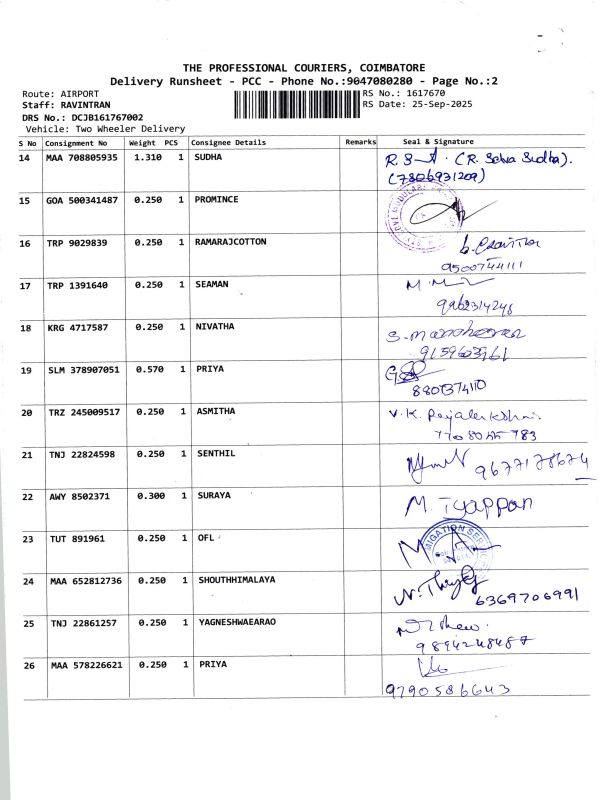 THE PROFESSIONAL COURIERS, COIMBATORE
Delivery Runsheet - PCC - Phone No.:9047080280 - Page No.:2
Route: AIRPORT
Staff: RAVINTRAN
DRS No.: DCJB161767002
Vehicle: Two Wheeler Delivery
RS No.: 1617670
RS Date: 25-Sep-2025
S No Consignment No Weight PCS Consignee Details Remarks Seal & Signature
14 MAA 708805935 1.310 1 SUDHA (R. Selva Sudha).
(7806931209)
15 GOA 500341487 0.250 1 PROMINCE
16 TRP 9029839 0.250 1 RAMARAJCOTTON
9500744111
17 TRP 1391640 0.250 1 SEAMAN
9962314248
18 KRG 4717587 0.250 1 NIVATHA
9159603961
19 SLM 378907051 0.570 1 PRIYA
20 TRZ 245009517 0.250 1 ASMITHA V.K.
21 TNJ 22824598 0.250 1 SENTHIL
9677178674
22 AWY 8502371 0.300 1 SURAYA M. Iyappan
23 TUT 891961 0.250 1 OFL
24 MAA 652812736 0.250 1 SHOUTHHIMALAYA
6369706991
25 TNJ 22861257 0.250 1 YAGNESHWAEARAO
9894248487
26 MAA 578226621 0.250 1 PRIYA
9790586643